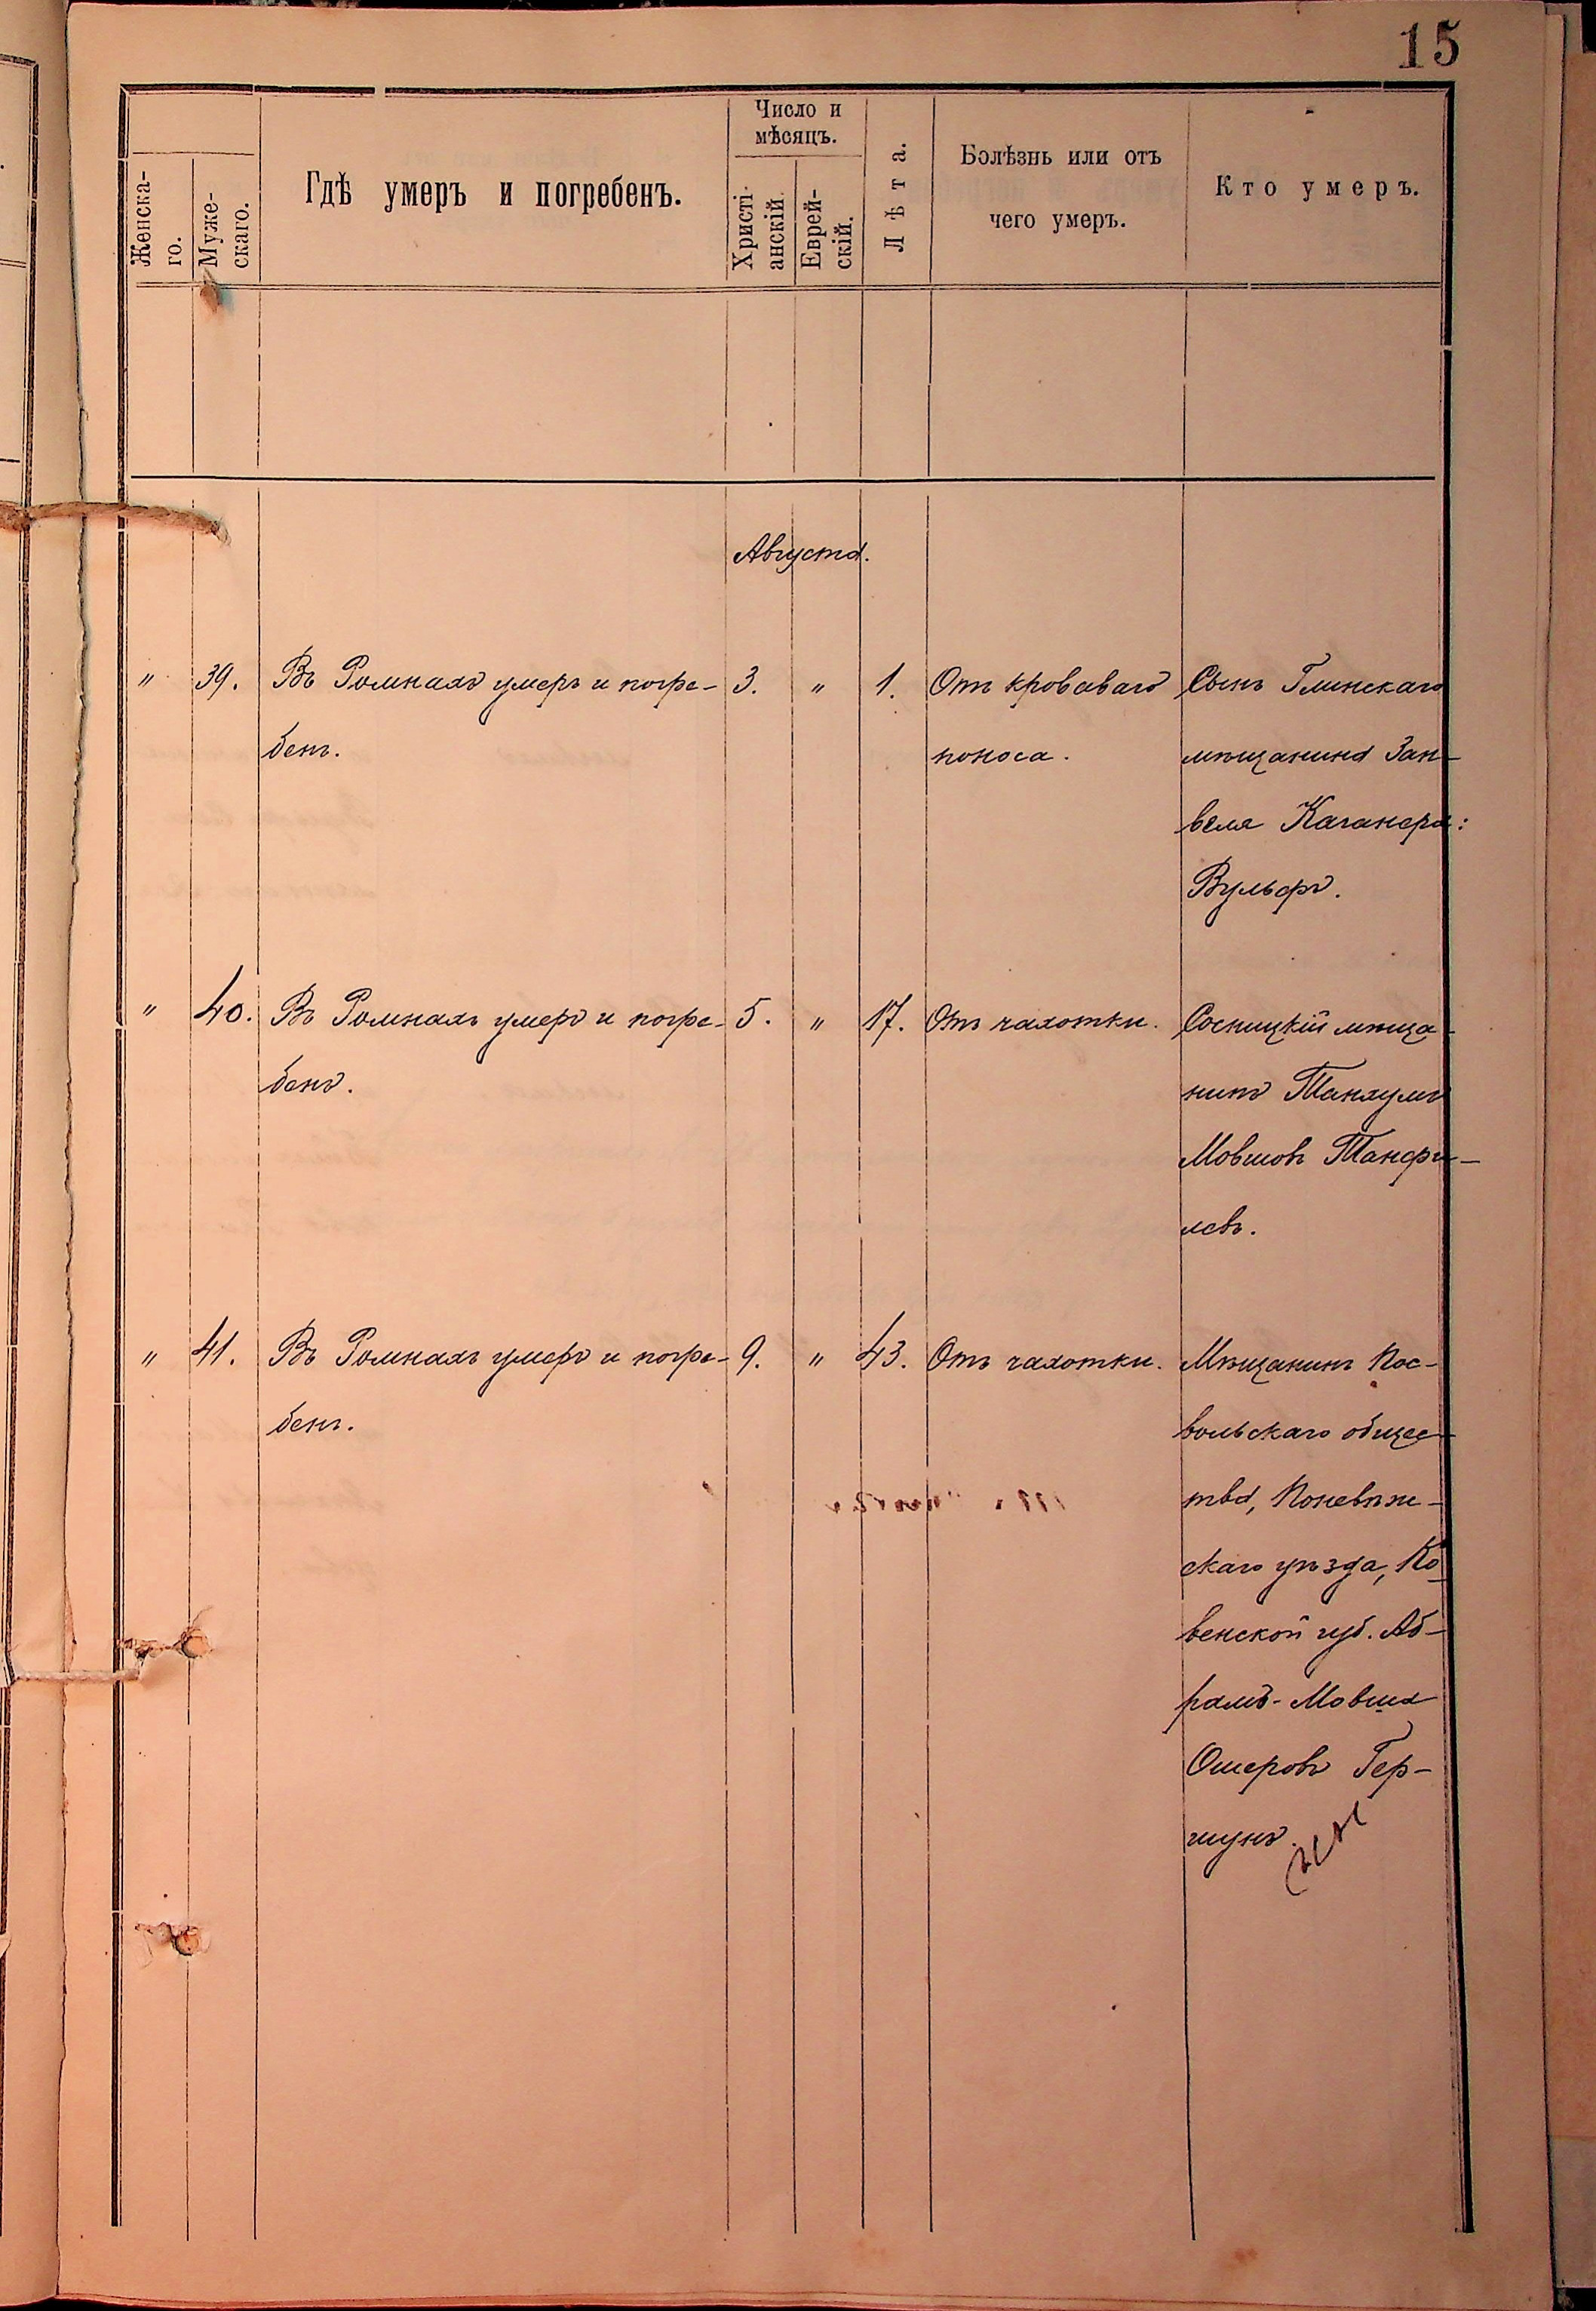 15
Женска-
го.
Муже-
скаго.
Гдѣ умеръ и погребенъ.
Число и
мѣсяцъ.
Христі-
анскій.
Еврей-
скій.
Лѣта.
Болѣзнь или отъ
чего умеръ.
Кто умеръ.
Августа.
" 39. Въ Ромнахъ умеръ и погре- 3. " 1. Отъ кроваваго Сынъ Глинскаго
бенъ. поноса. мѣщанина Зан-
веля Каганера:
Вульфъ.
" 40. Въ Ромнахъ умеръ и погре- 5. " 17. Отъ чахотки. Сосницкій мѣща-
бенъ. нинъ Танхумъ
Мовшовъ Танфи-
левъ.
" 41. Въ Ромнахъ умеръ и погре- 9. " 43. Отъ чахотки. Мѣщанинъ Пос-
бенъ. вольскаго общес-
тва, Поневѣж-
скаго уѣзда, Ко-
венской губ. Аб-
рамъ-Мовша
Ошеровъ Гер-
шунъ.